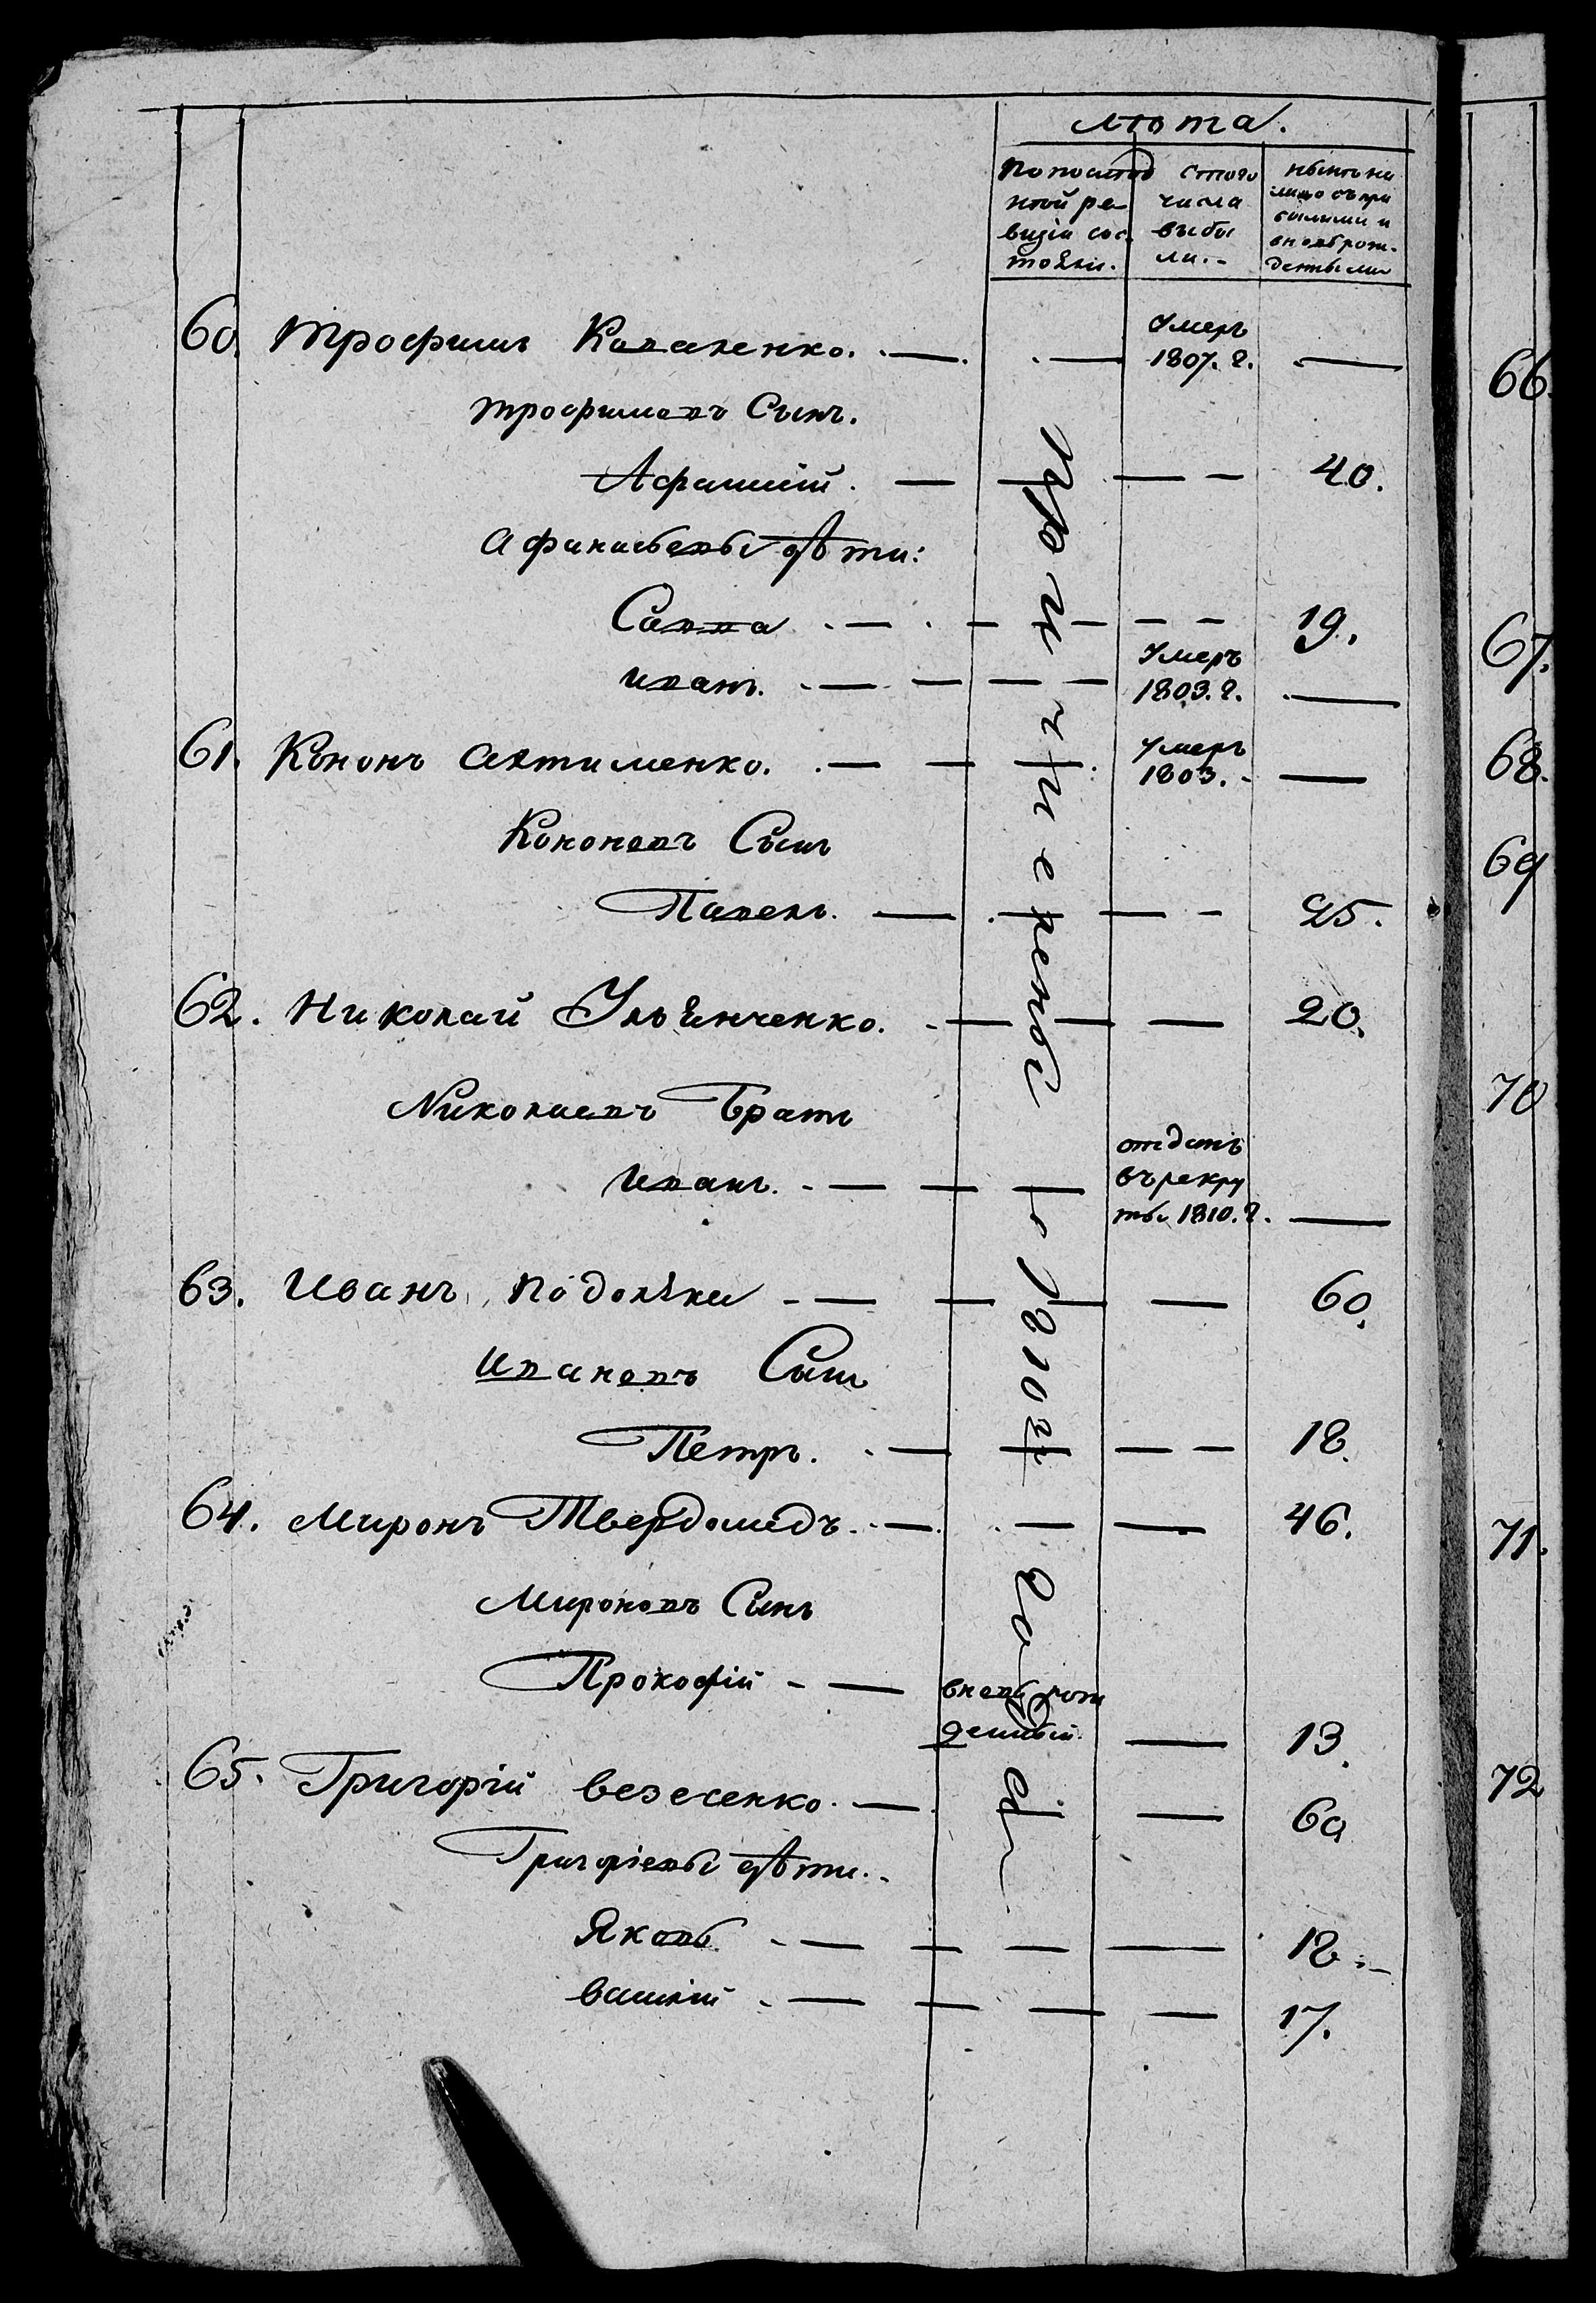 лѣта.
По послѣд
ней ре-
визіи сос-
тояли.
Стого
числа
выбы
ли.-
нынѣ на
лицо съ при
былыми и
вновь рож-
денными
60. Трофимъ Коваленко.
Умеръ
1807. г.
Трофимовъ Сынъ.
Афанасій. 40.
Афанасьевы дѣти:
Савва 19.
Иванъ. Умеръ
1803. г.
61. Кононъ Овтименко. Умеръ
1803.
Кононовъ Сынъ
Павелъ. 25.
62. Николай Ульянченко. 20.
Николаевъ Братъ
Иванъ. отданъ
въ рекру
ты 1810. г.
63. Иванъ Подоляка 60.
Ивановъ Сынъ
Петръ. 18.
64. Миронъ Твердомедъ. 46.
Мироновъ Сынъ
Прокофій вновь рож
денный. 13.
65. Григорій Везесенко. 60
Григоріевы дѣти.
Яковъ 18.
Василій 17.
66.
67.
68.
69
70
71.
72